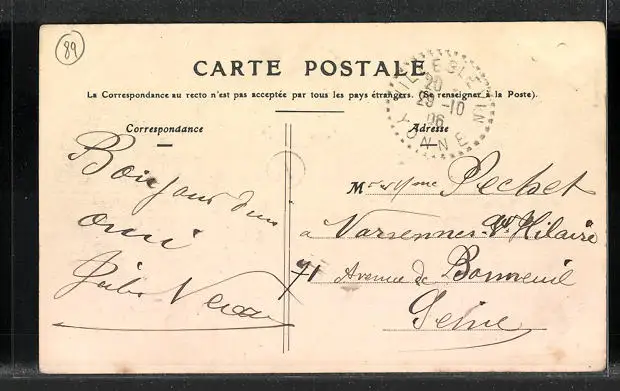 89
CARTE POSTALE
La Correspondance au recto n'est pas acceptée par tous les pays étrangers. (Se renseigner à la Poste).
Correspondance
Adresse
VILLEBLEVIN
20
29 -10
06
YONNE
Bonjour d'un
ami
Jules
Mr et Mme Pechet
à Varennes St Hilaire
71 Avenue de Bonneuil
Seine